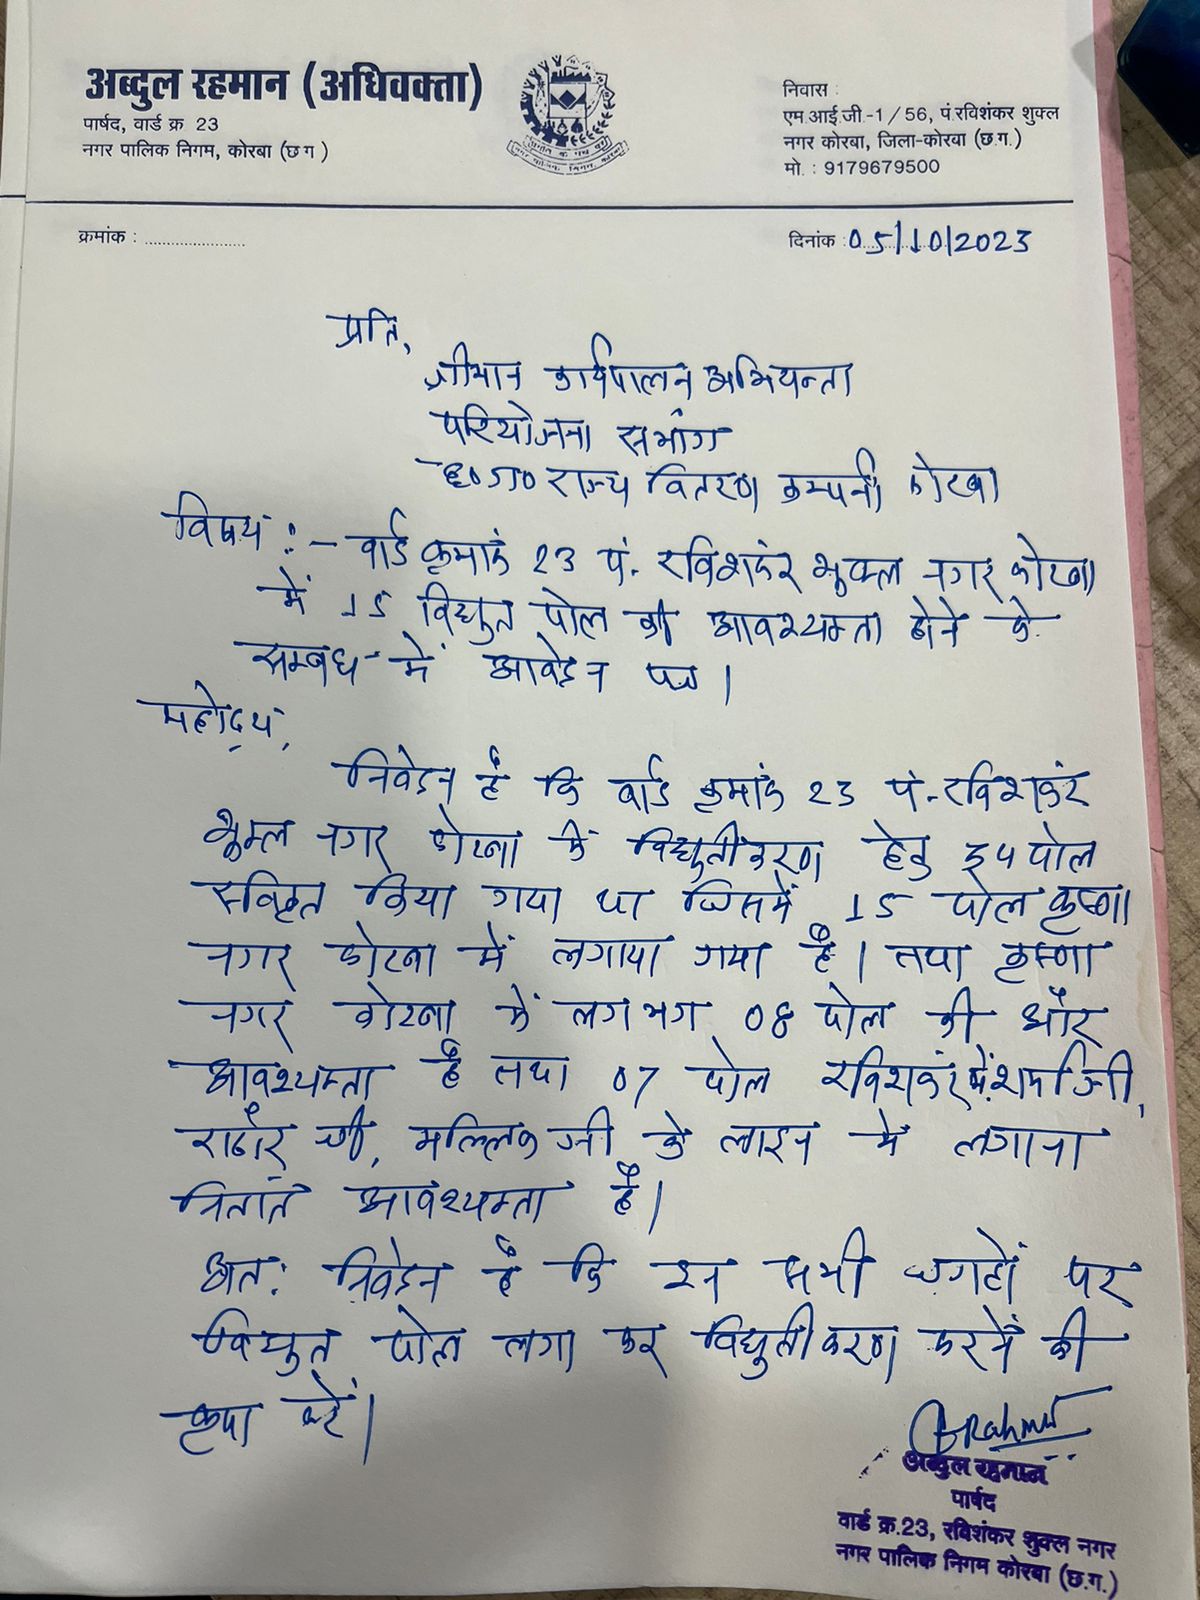 अब्दुल रहमान (अधिवक्ता)
पार्षद, वार्ड क्र 23
नगर पालिक निगम, कोरबा (छ ग )
निवास :
एम.आई.जी.-1 / 56, पं.रविशंकर शुक्ल
नगर कोरबा, जिला-कोरबा (छ.ग.)
मो. : 9179679500
क्रमांक : ........................
दिनांक : 05/10/2023
प्रति,
श्रीमान कार्यपालन अभियन्ता
परियोजना सभांग
छ०ग० राज्य वितरण कम्पनी कोरबा
विषय :- वार्ड क्रमांक 23 पं. रविशंकर शुक्ल नगर कोरबा
में 15 विद्युत पोल की आवश्यक्ता होने के
सम्बंध में आवेदन पत्र |
महोदय,
निवेदन है कि वार्ड क्रमांक 23 पं. रविशंकर
शुक्ल नगर कोरबा के विद्युतीकरण हेतु 34 पोल
स्वीकृत किया गया था जिसमें 15 पोल कृष्णा
नगर कोरबा में लगाया गया है | तथा कृष्णा
नगर कोरबा में लगभग 08 पोल की और
आवश्यक्ता है तथा 07 पोल रविशंकर में, शर्मा जी,
राठौर जी, मल्लिक जी के लाइन में लगाना
नितांत आवश्यक्ता है |
अतः निवेदन है कि इन सभी जगहों पर
विद्युत पोल लगा कर विद्युतीकरण करने की
कृपा करें |
ARahman
अब्दुल रहमान
पार्षद
वार्ड क्र.23, रविशंकर शुक्ल नगर
नगर पालिक निगम कोरबा (छ.ग.)